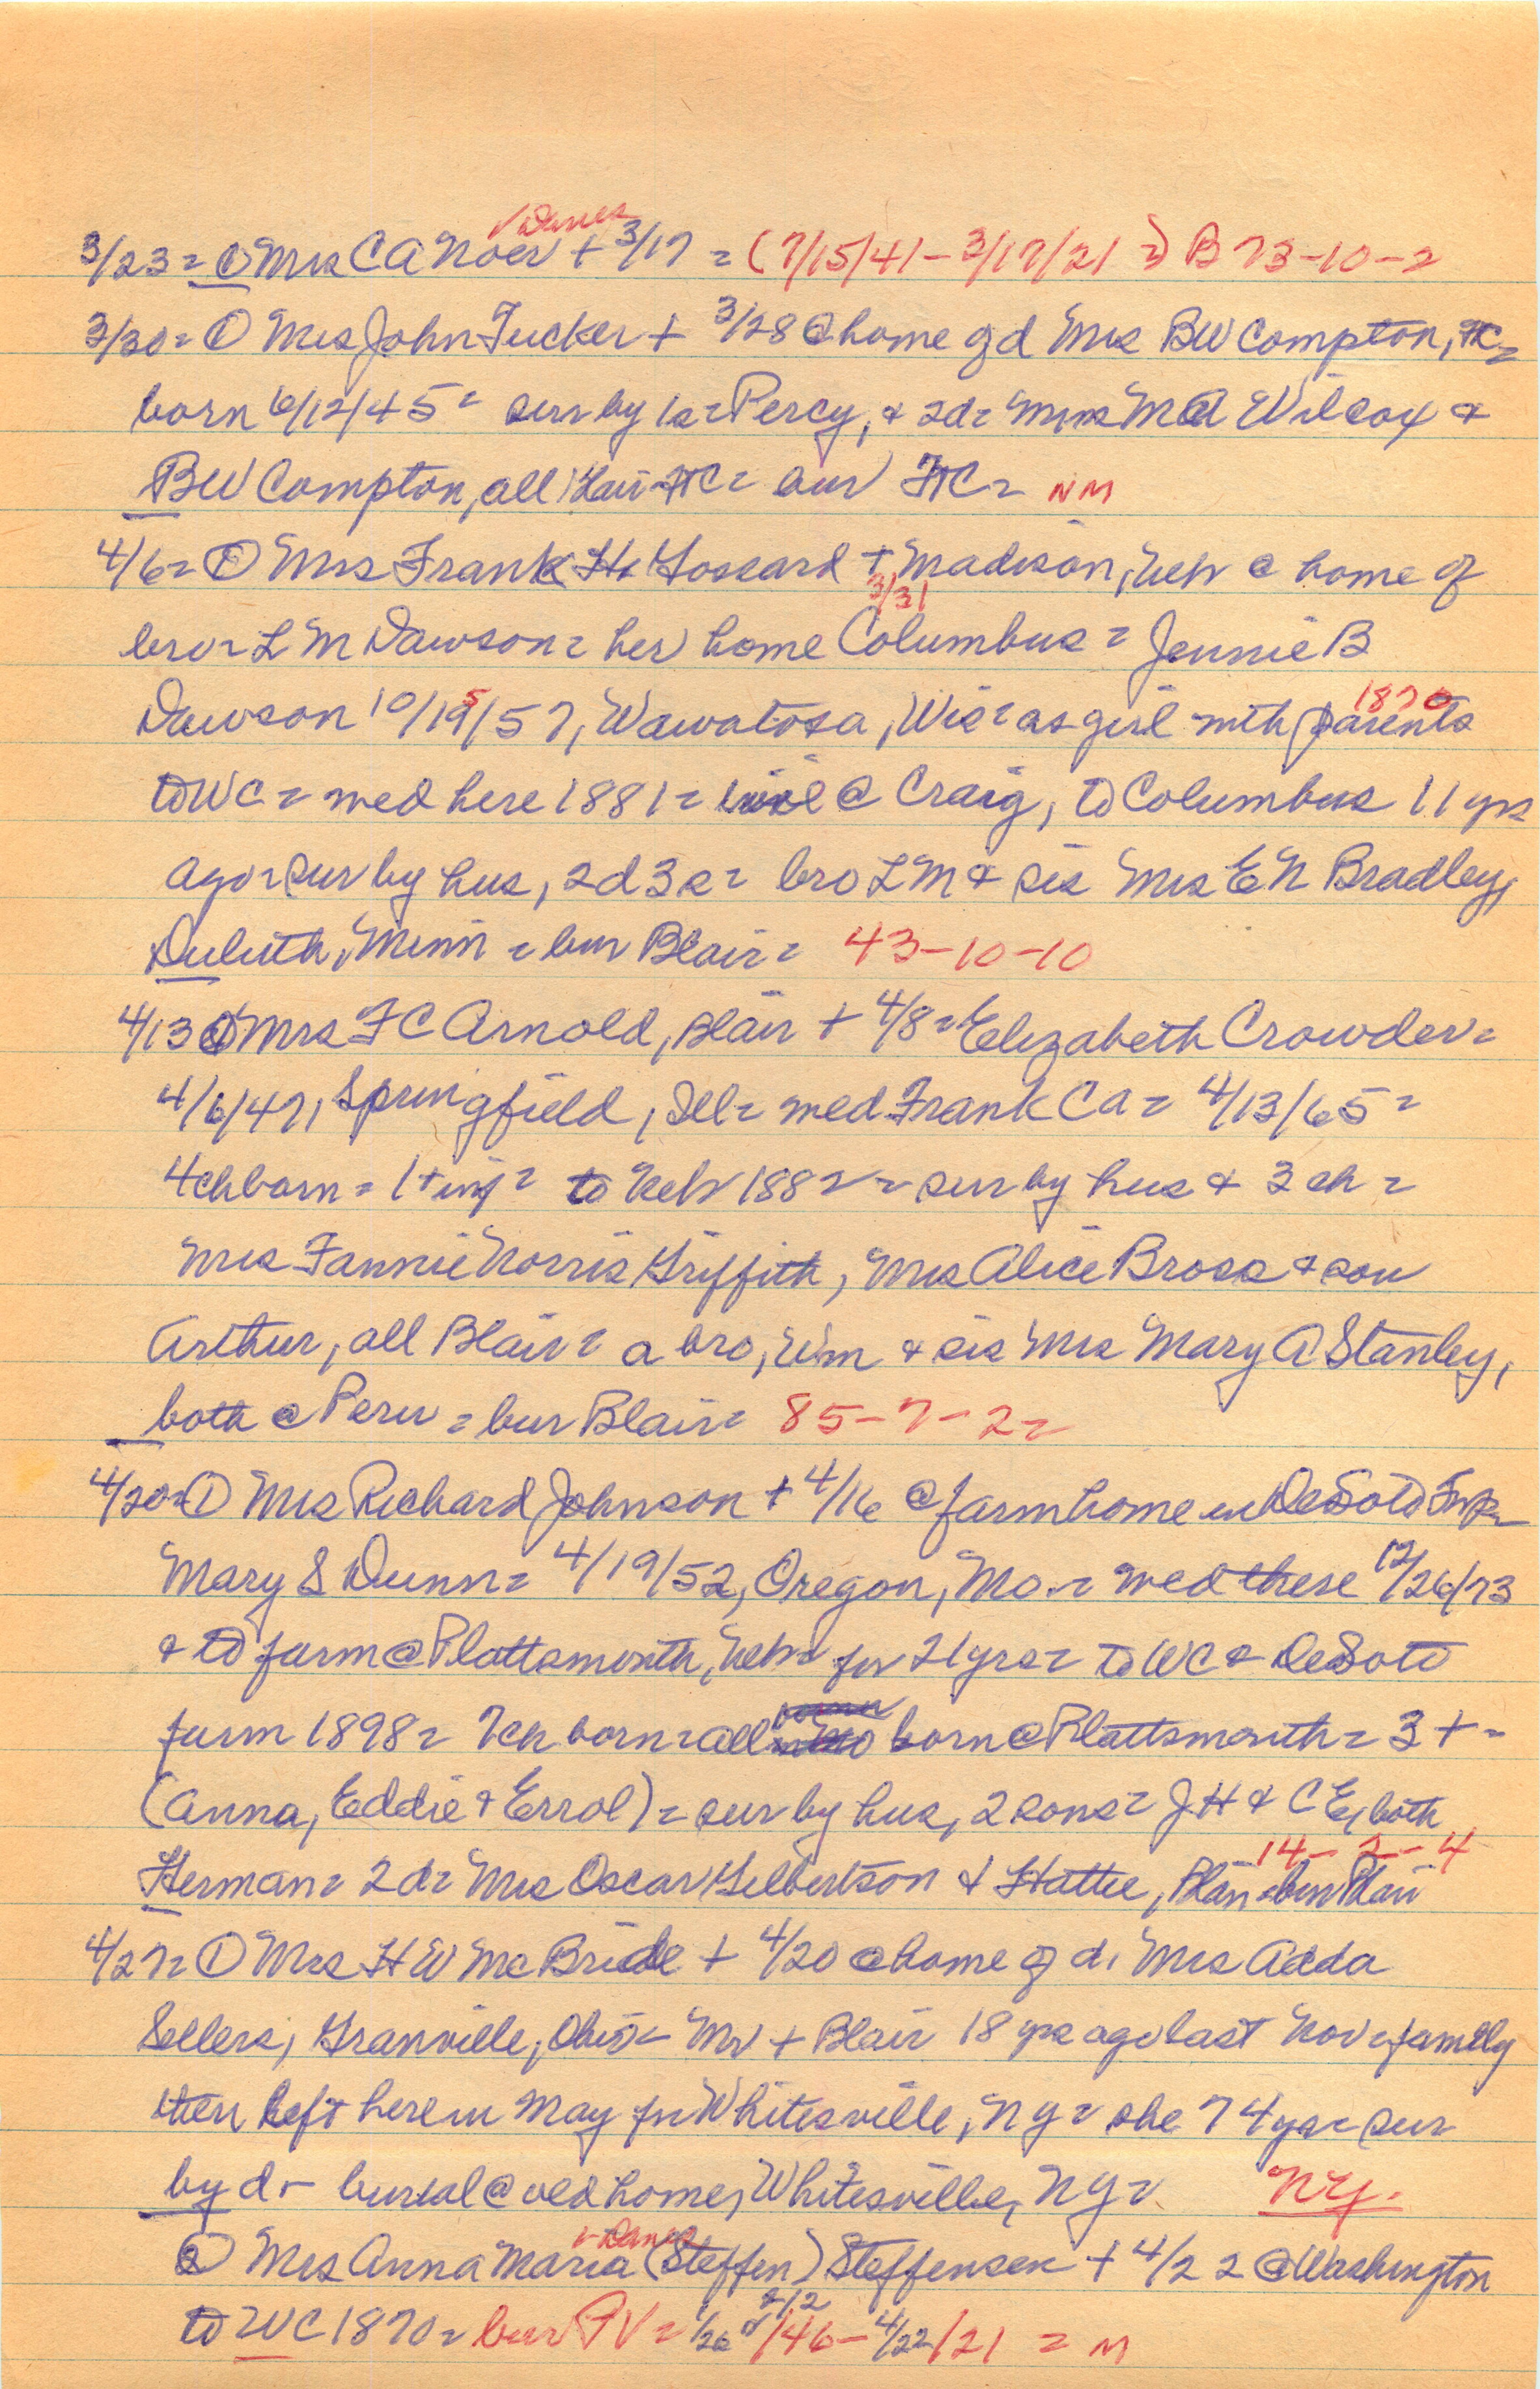 ✓Danes
3/23 = ① Mrs CA Noer + 3/17 = (7/15/41 - 3/17/21 =) B 73-10-2
3/30 = ① Mrs John Tucker + 3/28 @ home of d Mrs BW Compton, FtC =
born 6/12/45 = sur by 1s = Percy, & 2d = Mmes MA Wilcox &
BW Compton, all FtC = bur FtC = NM
4/6 = ① Mrs Frank H Gossard + Madison, Neb @ home of
3/31
bro = LM Dawson = her home Columbus = Jennie B
5 1870
Dawson 10/19/57, Wawatosa, Wis = as girl with parents
to WC = med here 1881 = @ Craig, to Columbus 11 yrs
ago = sur by hus, 2d 3s = bro LM & sis Mrs EN Bradley,
Duluth, Minn = bur Blair = 43-10-10
4/13 ① Mrs FC Arnold, Blair + 4/8 = Elizabeth Crowder =
4/6/47, Springfield, Ill = med Frank CA = 4/13/65 =
4 ch born = 1 + inf = to Neb 1882 = sur by hus & 3 ch =
Mrs Fannie Norris Griffith, Mrs Alice Bross & son
Arthur, all Blair = a bro, Wm & sis Mrs Mary A Stanley,
both @ Peru = bur Blair = 85-7-2 =
4/20 = ① Mrs Richard Johnson + 4/16 @ farm home in DeSoto Twp =
Mary S Dunn = 4/19/52, Oregon, Mo. = med there 12/26/73
& to farm @ Plattsmouth, Neb = for 21 yrs = to WC & DeSoto
farm 1898 = 7 ch born = all born @ Plattsmouth = 3 + =
(Anna, Eddie & Errol) = sur by hus, 2 sons = JH & CE, both
14-2-4
Herman = 2d = Mrs Oscar Gilbertson & Hattie, Blair = bur Blair
4/27 = ① Mrs HW McBride + 4/20 @ home of d, Mrs Adda
Sellers, Granville, Ohio = Mr + Blair 18 yrs ago last Nov = family
then left here in May for Whitesville, NY = she 74 ys = sur
by d - burial @ old home, Whitesville, NY = NY.
✓Danes
② Mrs Anna Maria (Steffen) Steffensen + 4/22 @ Washington
2/2
to WC 1870 = bur PV = 1/26/46 - 4/22/21 = M